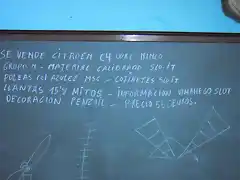 SE VENDE CITROEN C4 WRC NINCO
GRUPO N - MATERIAL CALIBRADO SLOT
POLEAS AZULES MSC - COJINETES SLOT IT
LLANTAS 15'9 MITOS - INFORMACION SLOT
DECORACION PENZOIL - PRECIO 55 EUROS.